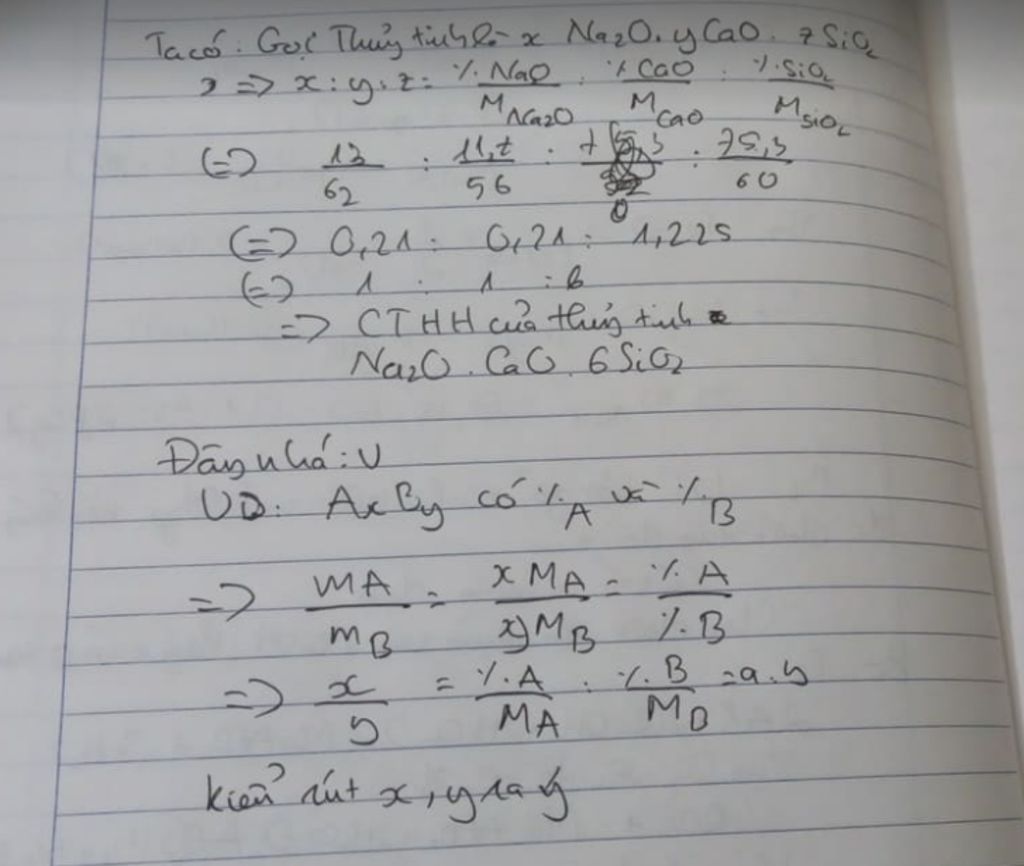 Ta có: Gọi Thủy tinh là x Na2O. y CaO. z SiO2
=> x : y : z = %NaO / M Na2O : %CaO / M CaO : %SiO2 / M SiO2
(=) 13/62 : 11,7/56 : 75,3/60
(=) 0,21 : 0,21 : 1,225
(=) 1 : 1 : 6
=> CTHH của thủy tinh
Na2O . CaO . 6SiO2
Đây nhá: U
VD: AxBy có %A và %B
=> mA/mB = xMA/yMB = %A/%B
=> x/y = %A/MA : %B/MB = a.b
kiểu rút x, y ra ý